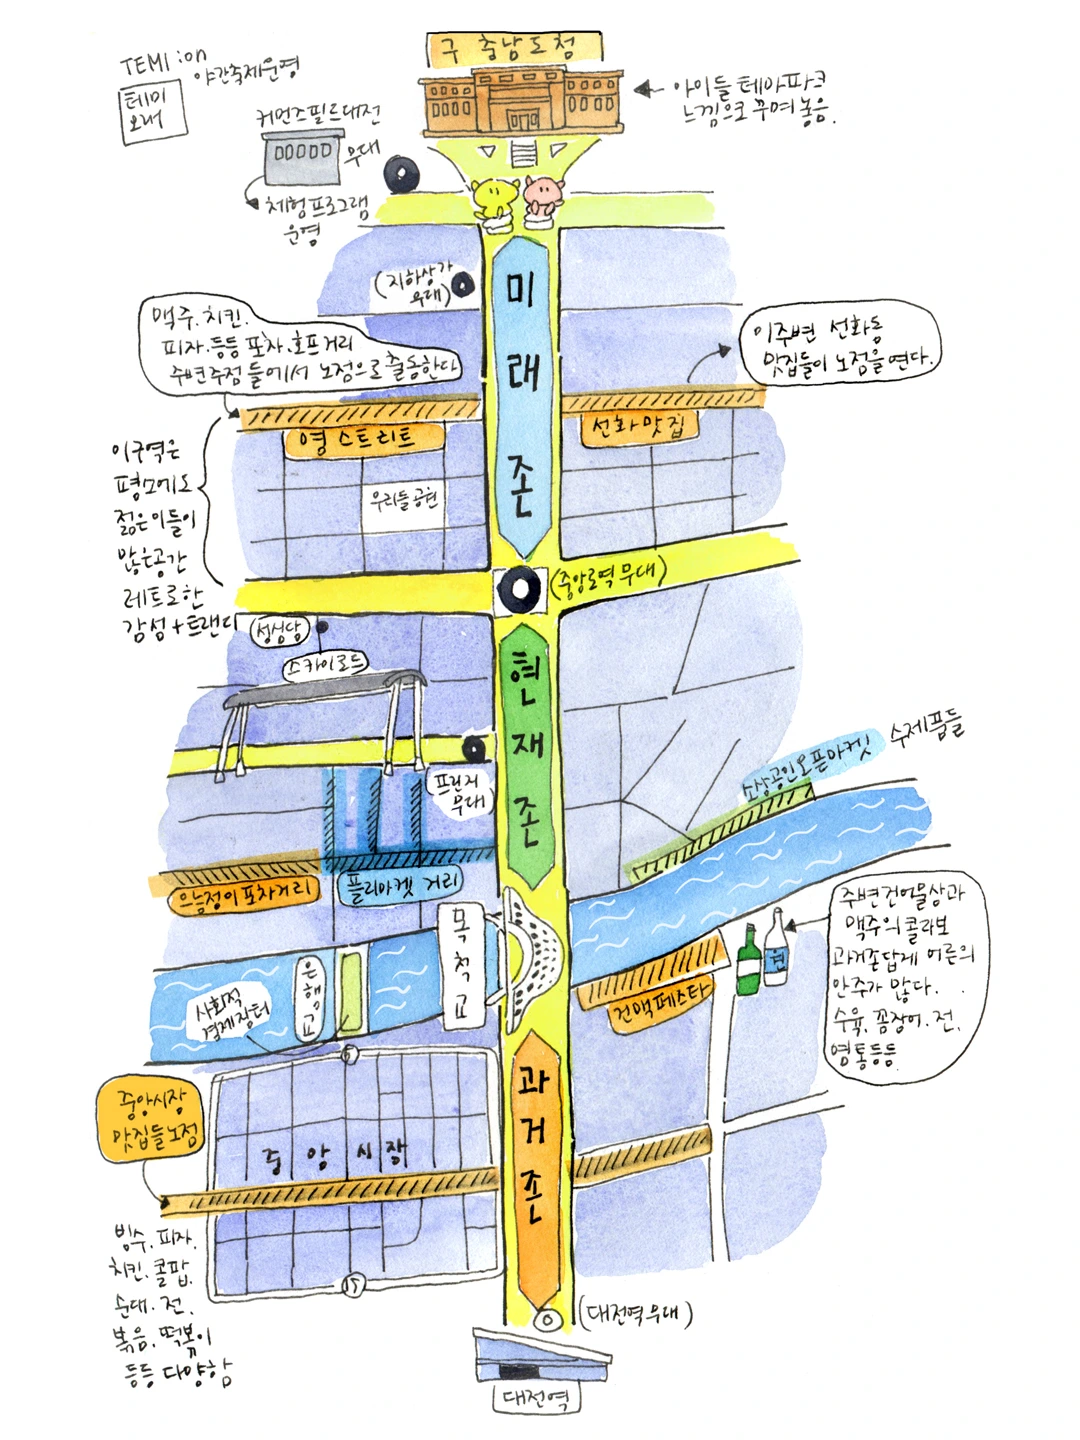 구 충남도청
TEMI:on
야간축제운영
테미
오래
커먼즈필드대전
무대
체험프로그램
운영
아이들 테마파크
느낌으로 꾸며 놓음.
미래존
(지하상가
무대)
맥주.치킨.
피자.등등 포차.호프거리
주변주점들에서 노점으로 출동한다
이주변 선화동
맛집들이 노점을 연다.
영 스트리트
선화맛집
우리들공원
이구역은
평소에도
젊은이들이
많은공간
레트로한
감성+트랜디
(중앙로역무대)
성심당
스카이로드
현재존
프린지
무대
소상공인오픈마켓
수제품들
으능정이포차거리
플리마켓 거리
목척교
은행교
사회적
경제장터
건맥페스타
주변건어물상과
맥주의콜라보
과거존답게 어른의
안주가 많다.
수육.꼼장어.전.
영통등등
과거존
중앙시장
중앙시장
맛집들노점
빙수.피자.
치킨.콜팝.
순대.전.
볶음.떡볶이
등등 다양함
(대전역무대)
대전역